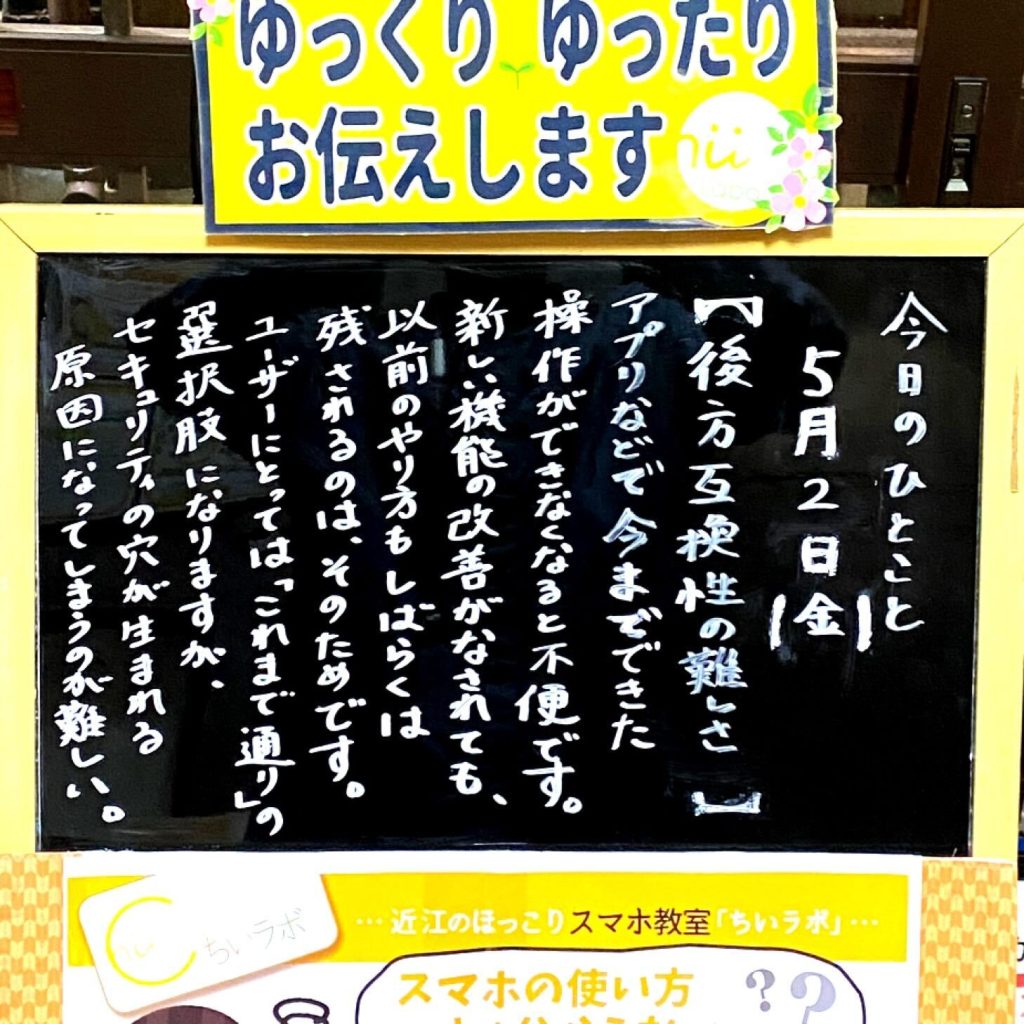 ゆっくり ゆったり
お伝えします
今日のひとこと
5月2日(金)
【後方互換性の難しさ】
アプリなどで今までできた
操作ができなくなると不便です。
新しい機能の改善がなされても、
以前のやり方もしばらくは
残されるのは、そのためです。
ユーザーにとっては「これまで通り」の
選択肢になりますが、
セキュリティの穴が生まれる
原因になってしまうのが難しい。
ちいラボ
…近江のほっこりスマホ教室「ちいラボ」…
スマホの使い方
??